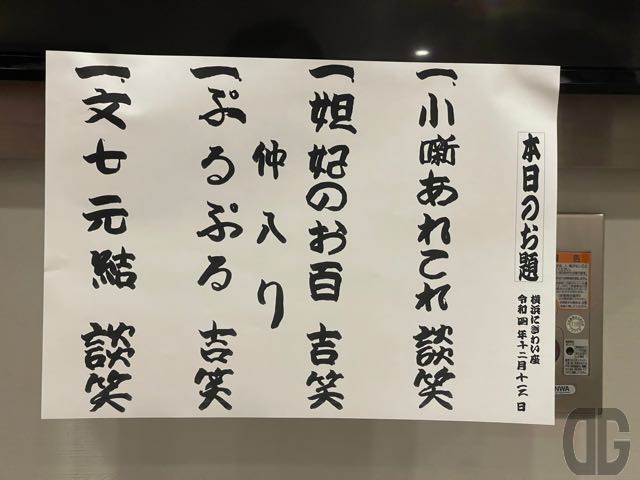 本日のお題
横浜にぎわい座
一、小噺あれこれ 談笑
一、妲妃のお百 吉笑
仲入り
一、ぷるぷる 吉笑
一、文七元結 談笑
DG